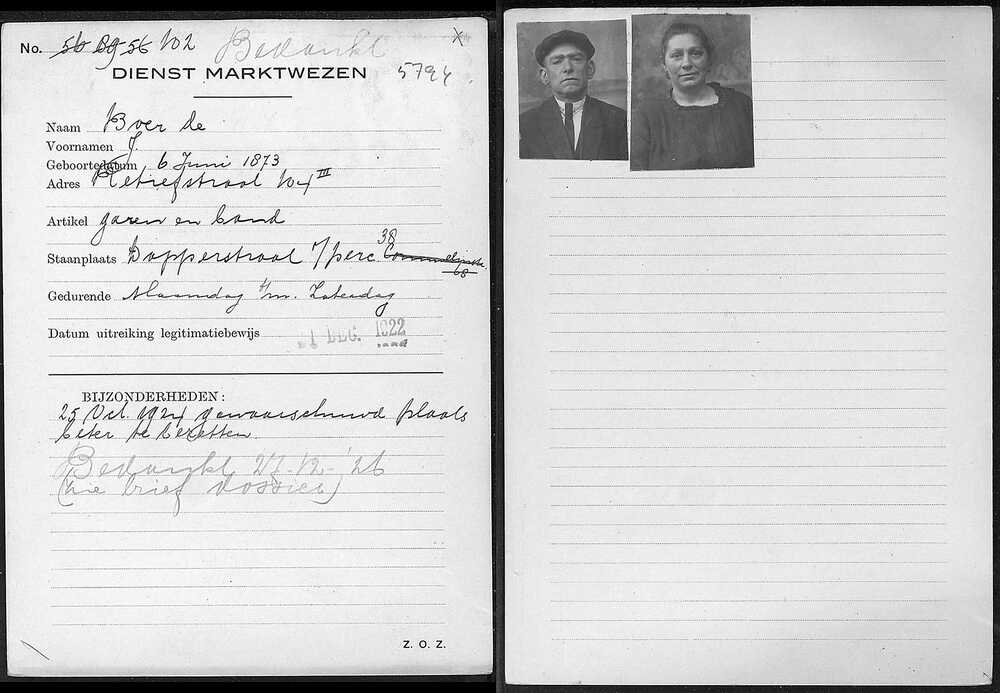 No. 56 89 56 102 Bedankt X
DIENST MARKTWEZEN 5794
Naam Boer de
Voornamen J.
Geboortedatum 6 Juni 1873
Adres Retiefstraat 104 III
Artikel garen en band
Staanplaats Dapperstraat 1/perc. 38 Commelinstr. 68
Gedurende Maandag t/m. Zaterdag
Datum uitreiking legitimatiebewijs 1 DEC. 1922
BIJZONDERHEDEN:
25 Oct. 1924 gewaarschuwd plaats
beter te bezetten.
Bedankt 27-12-'26
(zie brief dossier)
Z. O. Z.